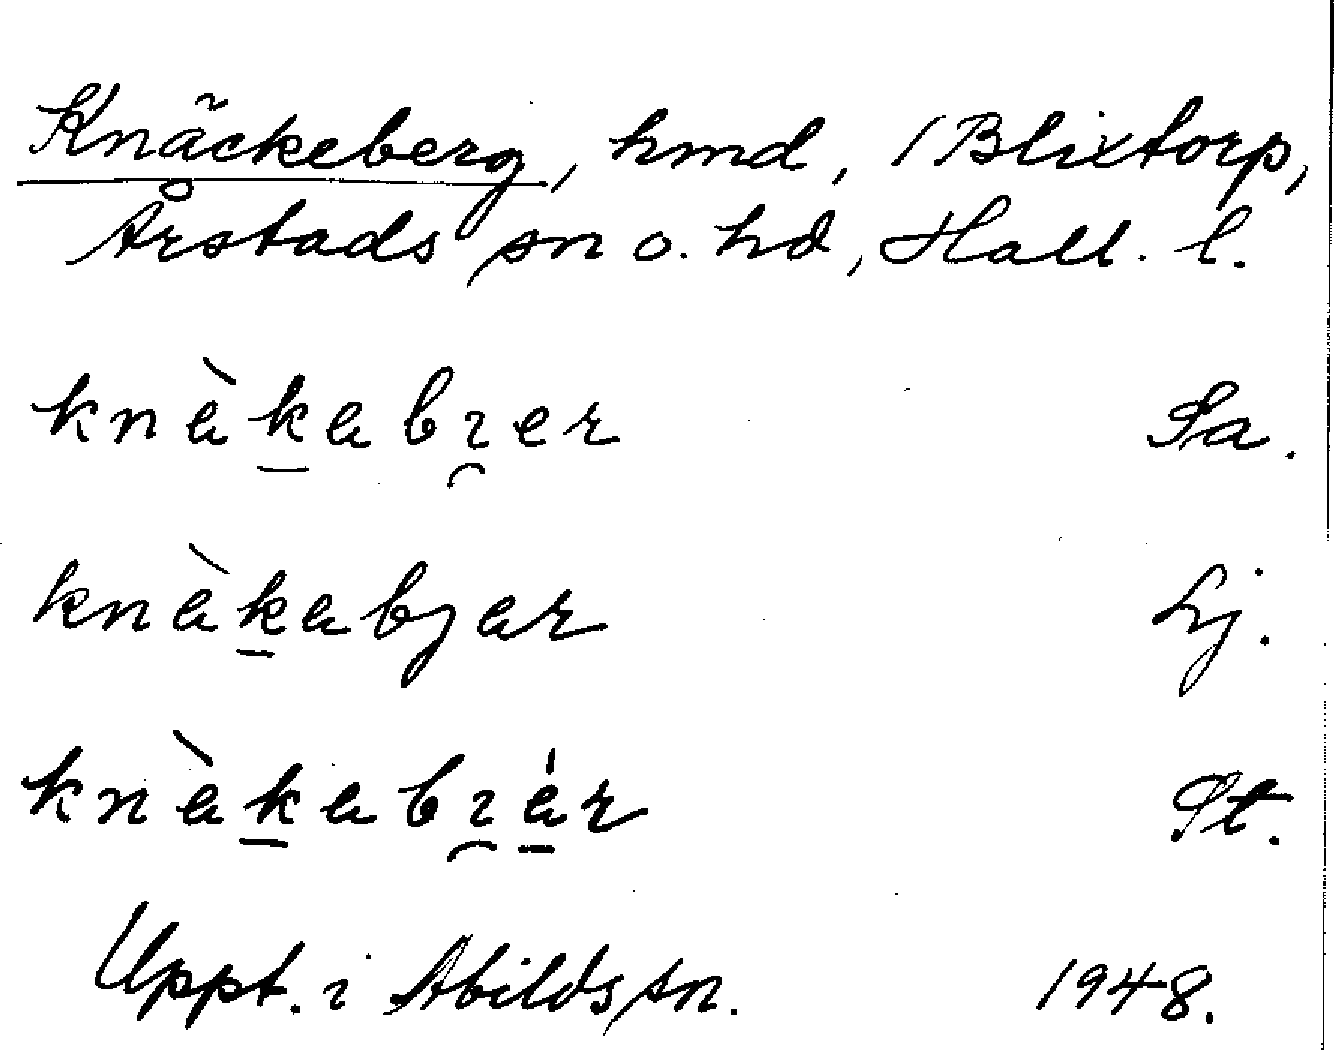 Knäckeberg, hmd, 1 Blixtorp,
Årstads sn o. hd, Hall. l.
knàk̲abı̯er Sa.
knàk̲abjar Lj.
knàk̲abı̯á̲r St.
Uppt. i Abilds sn. 1948.